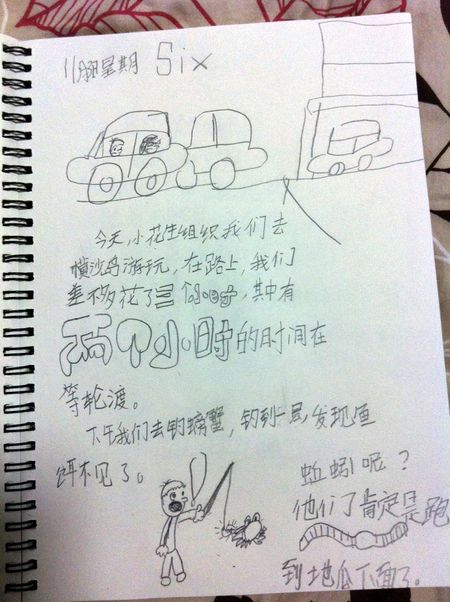 11月8日星期 Six
今天,小花生组织我们去
横沙岛游玩,在路上,我们
差不多花了三个小时,其中有
两个小时的时间在
等轮渡。
下午我们去钓螃蟹,钓到一 发现鱼
饵不见了。
蚯蚓呢?
他们了肯定是跑
到地瓜下面了。